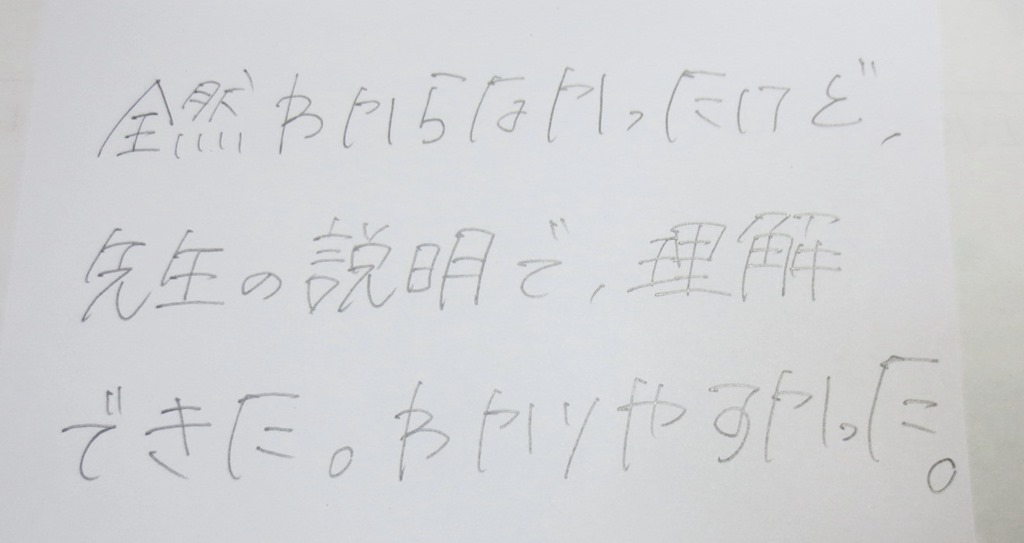 全然わからなかったけど、
先生の説明で、理解
できた。わかりやすかった。